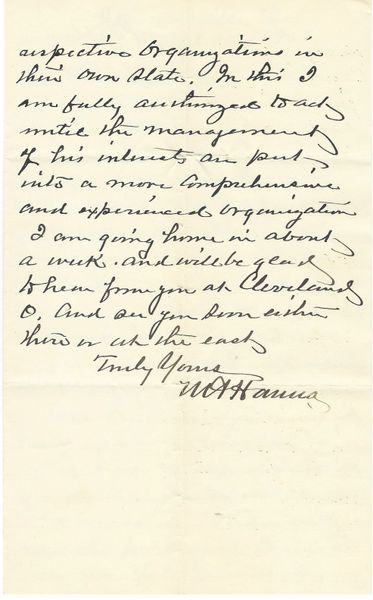 respective organizations in
their own state. In this I
am fully authorized to act
until the management
of his interests are put
into a more comprehensive
and experienced organization
I am going home in about
a week. and will be glad
to hear from you at Cleveland
O. and see you soon either
there or at the east
Truly Yours
M A Hanna